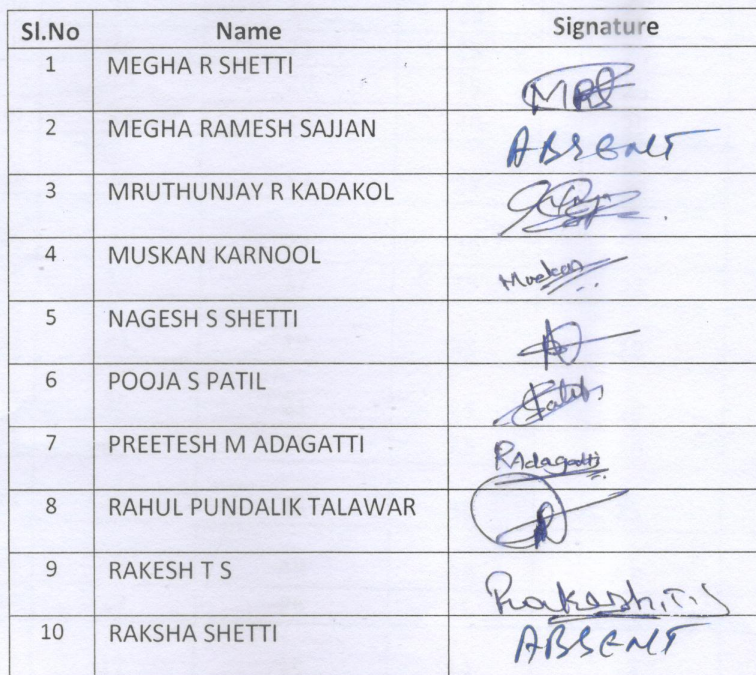 Sl.No Name Signature
1 MEGHA R SHETTI MRS
2 MEGHA RAMESH SAJJAN ABSENT
3 MRUTHUNJAY R KADAKOL
4 MUSKAN KARNOOL Muskan
5 NAGESH S SHETTI
6 POOJA S PATIL Patil
7 PREETESH M ADAGATTI PAdagatti
8 RAHUL PUNDALIK TALAWAR
9 RAKESH T S Rakesh.T.S
10 RAKSHA SHETTI ABSENT